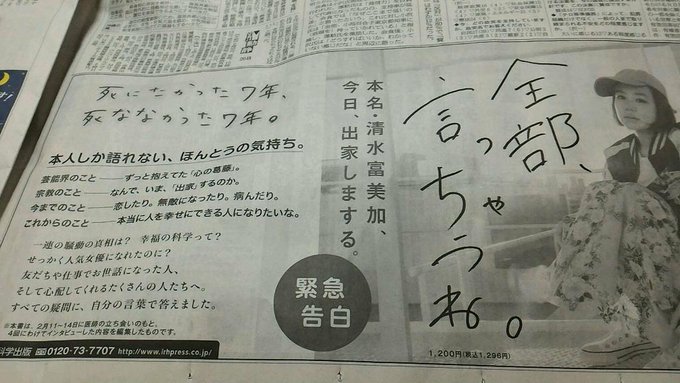 全部、
言っちゃうね。
本名・清水富美加、
今日、出家しまする。
死にたかった7年、
死ななかった7年。
本人しか語れない、ほんとうの気持ち。
芸能界のこと――ずっと抱えてた「心の葛藤」。
宗教のこと――なんで、いま、「出家」するのか。
今までのこと――恋したり。無敵になったり。病んだり。
これからのこと――本当に人を幸せにできる人になりたいな。
一連の騒動の真相は? 幸福の科学って?
せっかく人気女優になれたのに?
友だちや仕事でお世話になった人、
そして心配してくれるたくさんの人たちへ。
すべての疑問に、自分の言葉で答えました。
※本書は、2月11~14日に医師の立ち会いのもと、
4回にわけてインタビューした内容を編集したものです。
緊急
告白
1,200円(税込1,296円)
科学出版 0120-73-7707 http://www.irhpress.co.jp/